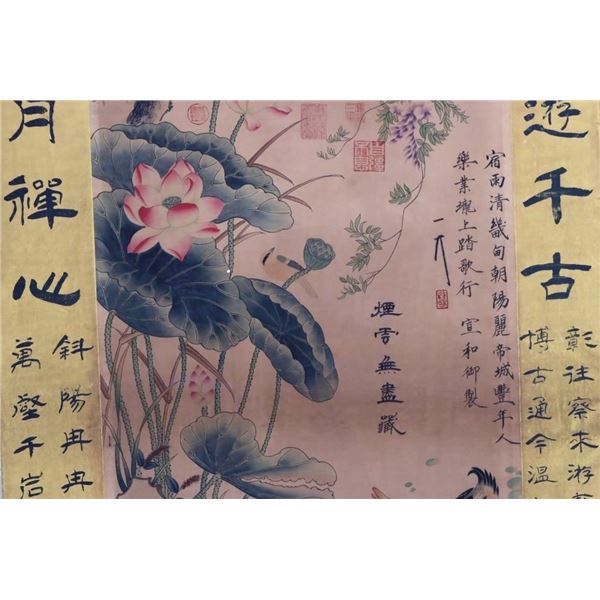 遊千古
彰往察來游
博古通今溫
宿雨清畿甸朝陽麗帝城豐年人
樂業壠上踏歌行 宣和御製
煙雲無盡藏
月禪心
斜陽冉冉
萬壑千岩